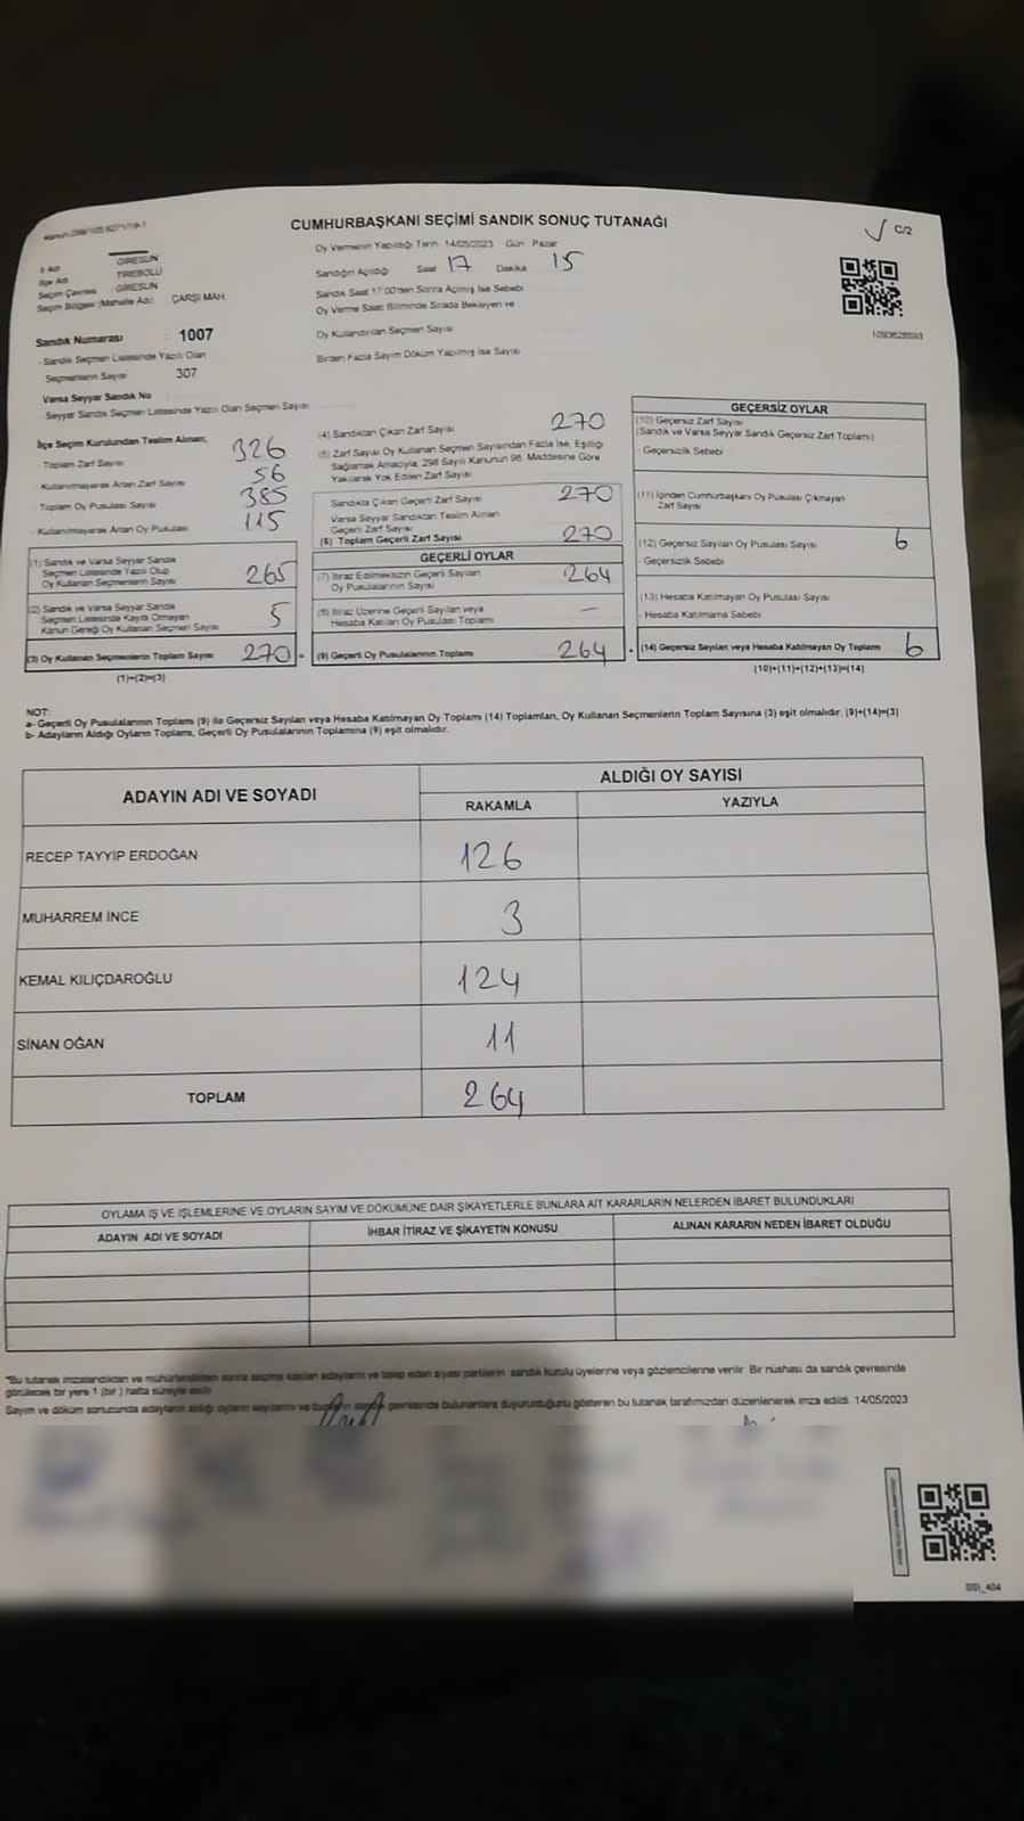 CUMHURBAŞKANI SEÇİMİ SANDIK SONUÇ TUTANAĞI
C/2
Oy Vermenin Yapıldığı Tarih 14/05/2023 Gün Pazar
İl Adı GİRESUN
İlçe Adı TİREBOLU
Seçim Çevresi GİRESUN
Seçim Bölgesi (Mahalle Adı) ÇARŞI MAH.
Sandığın Açıldığı Saat 17 Dakika 15
Sandık Saat 17:00'den Sonra Açılmış İse Sebebi
Oy Verme Saati Bitiminde Sırada Bekleyen ve
Oy Kullandırılan Seçmen Sayısı
Birden Fazla Sayım Döküm Yapılmış ise Sayısı
Sandık Numarası 1007
Sandık Seçmen Listesinde Yazılı Olan
Seçmenlerin Sayısı 307
Varsa Seyyar Sandık No
Seyyar Sandık Seçmen Listesinde Yazılı Olan Seçmen Sayısı
İlçe Seçim Kurulundan Teslim Alınan;
Toplam Zarf Sayısı 326
Kullanılmayarak Artan Zarf Sayısı 56
Toplam Oy Pusulası Sayısı 385
Kullanılmayarak Artan Oy Pusulası 115
(1) Sandık ve Varsa Seyyar Sandık
Seçmen Listesinde Yazılı Olup
Oy Kullanan Seçmenlerin Sayısı 265
(2) Sandık ve Varsa Seyyar Sandık
Seçmen Listesinde Kayıtlı Olmayan
Kanun Gereği Oy Kullanan Seçmen Sayısı 5
(3) Oy Kullanan Seçmenlerin Toplam Sayısı 270
(1)+(2)=(3)
(4) Sandıktan Çıkan Zarf Sayısı 270
(5) Zarf Sayısı Oy Kullanan Seçmen Sayısından Fazla İse, Eşitliği
Sağlamak Amacıyla, 298 Sayılı Kanunun 98. Maddesine Göre
Yakılarak Yok Edilen Zarf Sayısı
Sandıkta Çıkan Geçerli Zarf Sayısı 270
Varsa Seyyar Sandıktan Teslim Alınan
Geçerli Zarf Sayısı
(6) Toplam Geçerli Zarf Sayısı 270
GEÇERLİ OYLAR
(7) İtiraz Edilmeksizin Geçerli Sayılan
Oy Pusulalarının Sayısı 264
(8) İtiraz Üzerine Geçerli Sayılan veya
Hesaba Katılan Oy Pusulası Toplamı –
(9) Geçerli Oy Pusulalarının Toplamı 264
GEÇERSİZ OYLAR
(10) Geçersiz Zarf Sayısı
(Sandık ve Varsa Seyyar Sandık Geçersiz Zarf Toplamı)
Geçersizlik Sebebi
(11) İçinden Cumhurbaşkanı Oy Pusulası Çıkmayan
Zarf Sayısı
(12) Geçersiz Sayılan Oy Pusulası Sayısı 6
Geçersizlik Sebebi
(13) Hesaba Katılmayan Oy Pusulası Sayısı
- Hesaba Katılmama Sebebi
(14) Geçersiz Sayılan veya Hesaba Katılmayan Oy Toplamı 6
(10)+(11)+(12)+(13)=(14)
NOT:
a- Geçerli Oy Pusulalarının Toplamı (9) ile Geçersiz Sayılan veya Hesaba Katılmayan Oy Toplamı (14) Toplamları, Oy Kullanan Seçmenlerin Toplam Sayısına (3) eşit olmalıdır. (9)+(14)=(3)
b- Adayların Aldığı Oyların Toplamı, Geçerli Oy Pusulalarının Toplamına (9) eşit olmalıdır.
ADAYIN ADI VE SOYADI ALDIĞI OY SAYISI
RAKAMLA YAZIYLA
RECEP TAYYİP ERDOĞAN 126
MUHARREM İNCE 3
KEMAL KILIÇDAROĞLU 124
SİNAN OĞAN 11
TOPLAM 264
OYLAMA İŞ VE İŞLEMLERİNE VE OYLARIN SAYIM VE DÖKÜMÜNE DAİR ŞİKAYETLERLE BUNLARA AİT KARARLARIN NELERDEN İBARET BULUNDUKLARI
ADAYIN ADI VE SOYADI İHBAR İTİRAZ VE ŞİKAYETİN KONUSU ALINAN KARARIN NEDEN İBARET OLDUĞU
"Bu tutanak imzalandıktan ve mühürlendikten sonra seçime katılan adayların ve talep eden siyasi partilerin sandık kurulu üyelerine veya gözlemcilerine verilir. Bir nüshası da sandık çevresinde
görülecek bir yere 1 (bir) hafta süreyle asılır.
Sayım ve döküm sonucunda adayların aldığı oyların sayılarını ve sandık çevresinde bulunanlara duyurulduğunu gösteren bu tutanak tarafımızdan düzenlenerek imza edildi. 14/05/2023